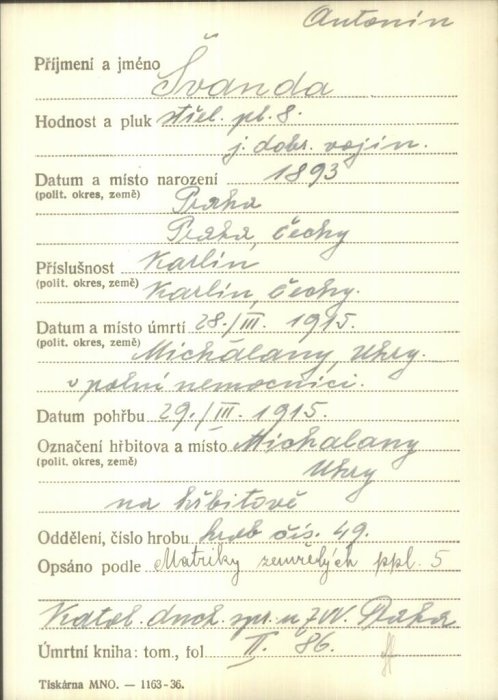 Antonín
Příjmení a jméno Švanda
Hodnost a pluk střel. pl. 8.
j. dobr. vojín.
Datum a místo narození 1893
(polit. okres, země) Praha
Praha, Čechy
Příslušnost Karlín
(polit. okres, země) Karlín, Čechy.
Datum a místo úmrtí 28./III. 1915.
(polit. okres, země) Michálany, Uhry.
v polní nemocnici.
Datum pohřbu 29./III. 1915.
Označení hřbitova a místo Michalany
(polit. okres, země) Uhry
na hřbitově
Oddělení, číslo hrobu hrob čís. 49.
Opsáno podle Matriky zemřelých ppl. 5
Katol. duch. spr. u ZVV. Praha
Úmrtní kniha: tom., fol II. 86.
Tiskárna MNO. — 1163-36.